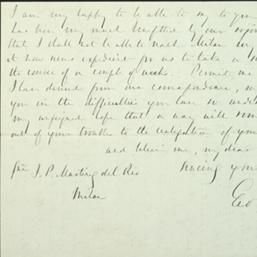 I am very happy to be able to say to you
has been very much benefitted by our
that I shall not be able to reach Milan in
it how seems expedient for us to take a
the course of a couple of weeks. Permit me
I have derived from our correspondence,
you in the difficulties you have so
my unfeigned hope that a way will
out of your troubles to the satisfaction of your
and believe me, my dear
Sincerely your
J. P. Mastriz del Rio
Milan
Geo